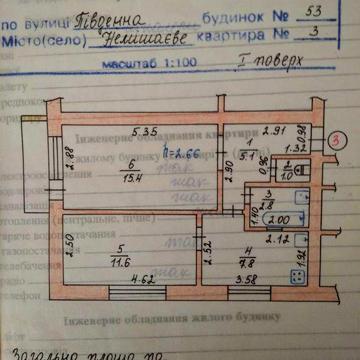 по вулиці Південна будинок № 53
Місто(село) Немішаєве квартира № 3
масштаб 1:100 I поверх
5.35
2.91
0.98
1.32
3
Інженерне обладнання квартири
h=2.66
1
5.1
2.88
6
15.4
2.90
0.96
2
1.0
3
2.8
1.40
2.00
2.50
5
11.6
2.52
2.12
4
7.8
1.92
4.62
3.58
Інженерне обладнання жилого будинку
Загальна площа по